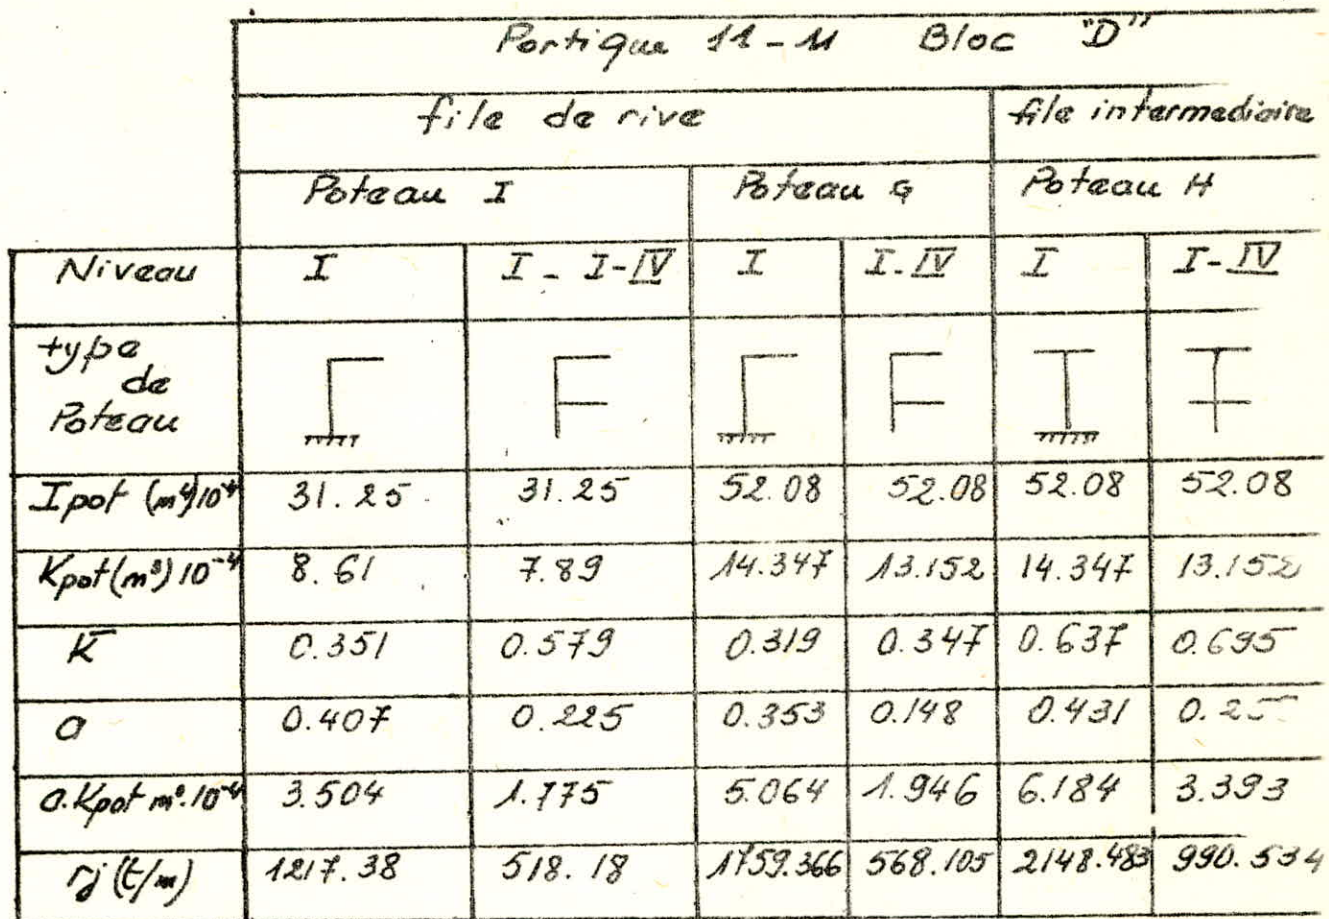 Portique 11-11 Bloc "D"
file de rive file intermediaire
Poteau I Poteau G Poteau H
Niveau I I - I-IV I I-IV I I-IV
type
de
Poteau
Ipot (m4)10-4 31.25 31.25 52.08 52.08 52.08 52.08
Kpot(m3)10-4 8.61 7.89 14.347 13.152 14.347 13.152
K̅ 0.351 0.579 0.319 0.347 0.637 0.695
a 0.407 0.225 0.353 0.148 0.431
a.Kpot m3.10-4 3.504 1.775 5.064 1.946 6.184 3.393
rj (t/m) 1217.38 518.18 1759.366 568.105 2148.483 990.534